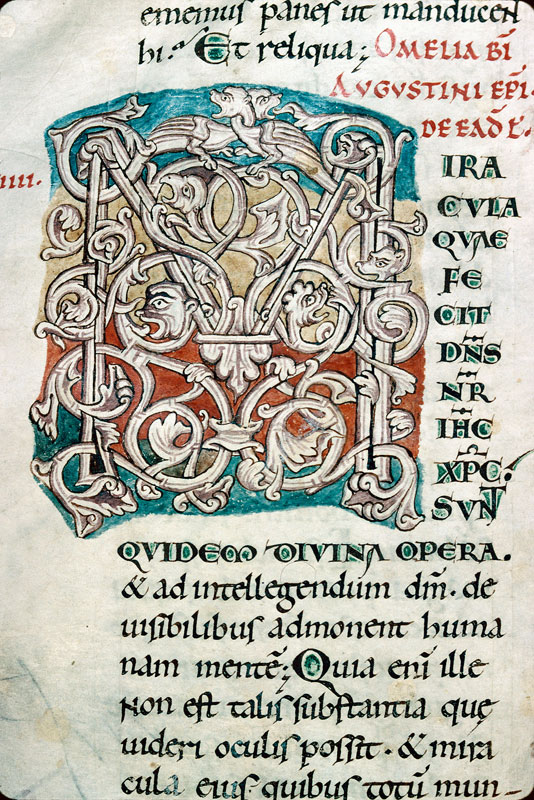 ememus panes ut manducen
hi·ᵃ Et reliqua; OMELIA BĪ
AUGUSTINI EPĪ·
DE EAD̄ Ł·
IIII·
M IRA
CULA
QUAE
FE
CIT
DN̄S
NR̄
IH̄C
XP̄C·
SUNT
QUIDEM DIVINA OPERA.
& ad intellegendum dm̄· de
uisibilibus admonent huma
nam mentē; Quia enī ille
non est talis substantia quę
uideri oculis possit· & mira
cula eius· quibus totū mun-